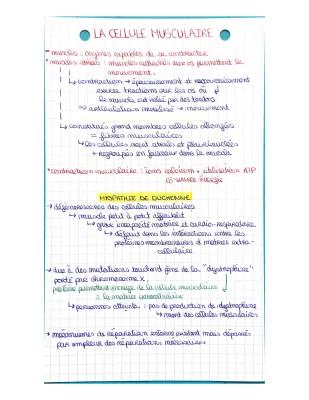 LA CELLULE MUSCULAIRE
- muscles = organes capables de se contracter
- muscles striés : muscles rattachés aux os permettant le
mouvement.
↳ contraction → épaississement et raccourcissement
exerce tractions sur les os où
le muscle est relié par des tendons
⇒ articulation mobilisée → mouvement
↳ constitués grand nombres cellules allongées
= fibres musculaires
↳ les cellules sont striées et plurinucléées
+ regroupés en faisceau dans le muscle
• contraction musculaire : ions calcium + utilisation ATP
↳ source énergie
MYOPATHIE DE DUCHENNE
→ dégénérescence des cellules musculaires
→ muscle petit à petit affaiblit
↳ grave incapacité motrice et cardio-respiratoire
↳ défaut dans les interactions entre les
protéines membranaires et matrice extra-
cellulaire
→ due à des mutations touchant gène de la "dystrophine"
porté par chromosome X.
protéine permettant ancrage de la cellule musculaire
à la matrice extracellulaire
↳ personnes atteints : pas de production de dystrophine
↳ mort des cellules musculaires
→ mécanismes de réparation existent mais dépassé
par ampleur des réparations nécessaires